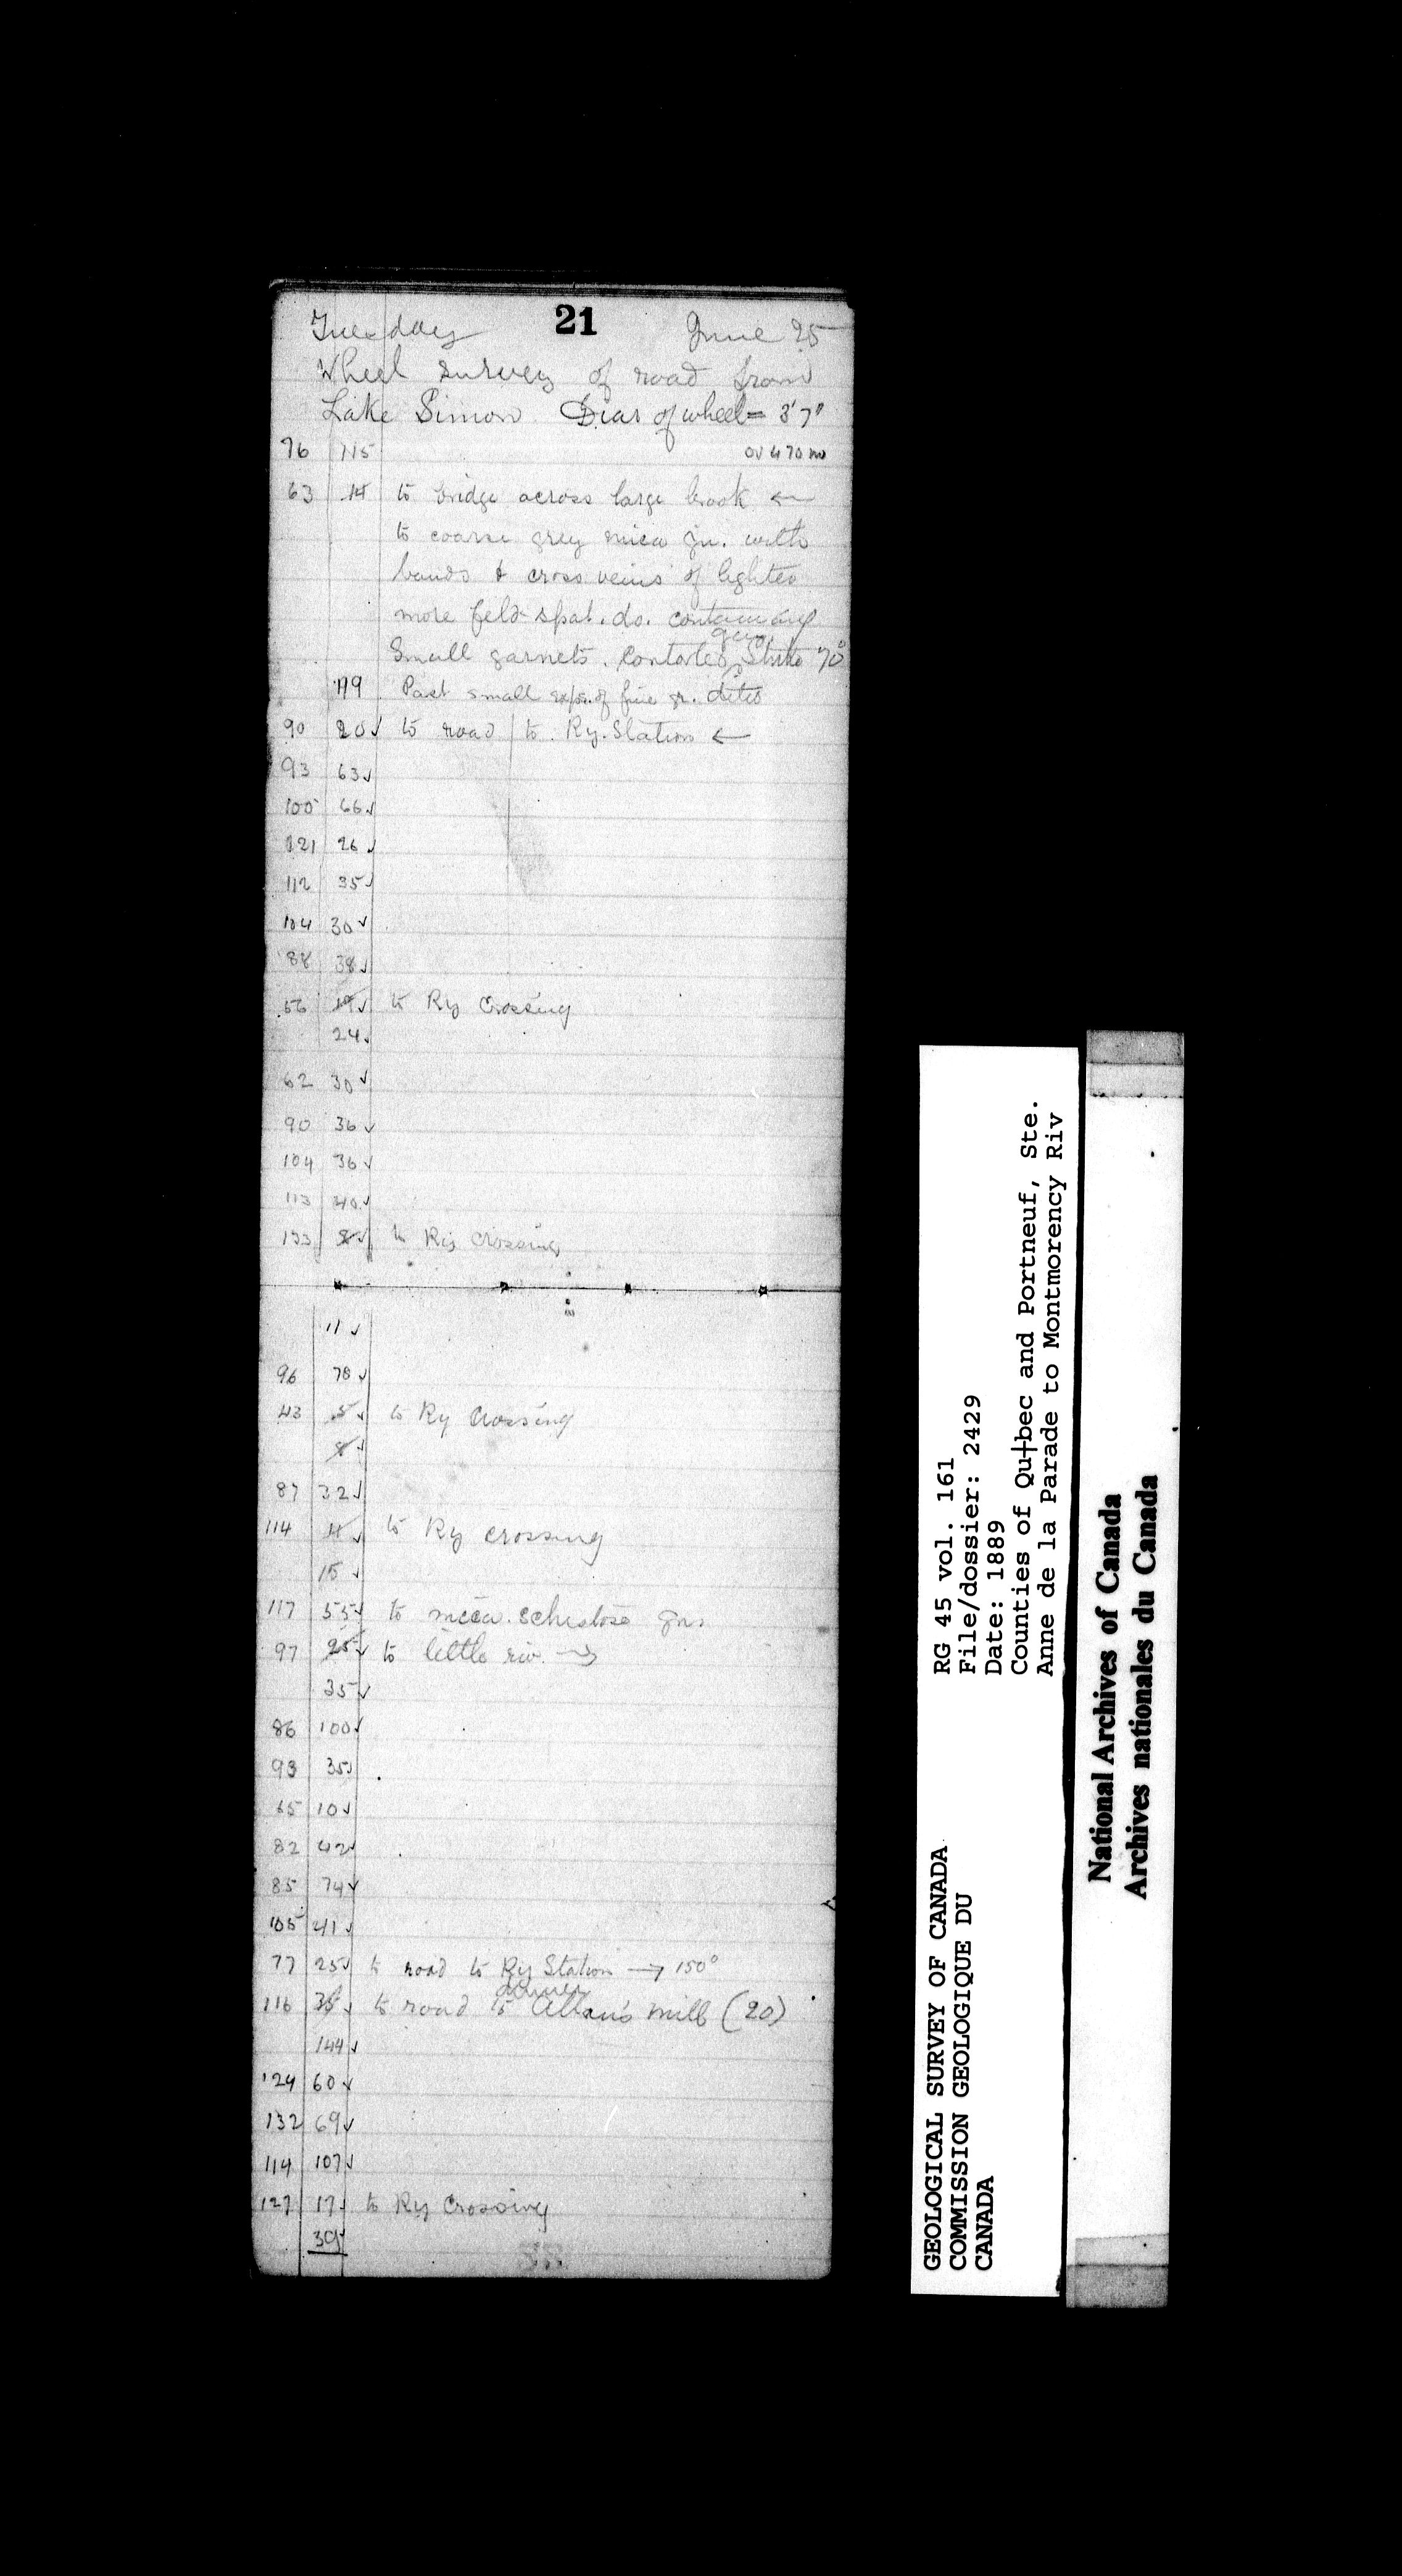 21
Tuesday June 25
Wheel survey of road from
Lake Simon Diar of wheel = 3'7"
76 115
63 14 to bridge across large brook ←
to coarse grey mica gn. with
bands & cross veins of lighter
more feldspat. do. containing
gen.
Small garnets. Contorted Strike 70°
119 Past small expo. of fine gr. ditto
90 20✓ to road to Ry. Station ←
93 63✓
100 66✓
121 26✓
112 35✓
104 30✓
88 38✓
56 19✓ to Ry Crossing
24✓
62 30✓
90 36✓
104 36✓
113 40✓
133 8✓ to Ry crossing
11✓
96 78✓
43 5✓ to Ry Crossing
8✓
87 32✓
114 4✓ to Ry crossing
15✓
117 55✓ to mica schistose gn.
97 25✓ to little riv. →
35✓
86 100✓
93 35✓
65 10✓
82 42✓
85 74✓
105 41✓
77 25✓ to road to Ry Station → 150°
116 35✓ to road to Allan's mill (20)
144✓
124 60✓
132 69✓
114 107✓
127 17✓ to Ry Crossing
39
GEOLOGICAL SURVEY OF CANADA
COMMISSION GEOLOGIQUE DU
CANADA
RG 45 vol. 161
File/dossier: 2429
Date: 1889
Counties of Qu†bec and Portneuf, Ste.
Anne de la Parade to Montmorency Riv
National Archives of Canada
Archives nationales du Canada